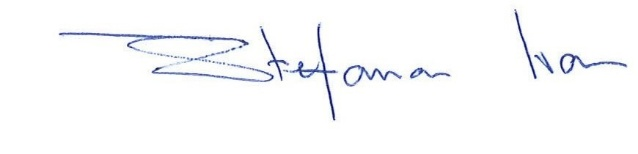 Stefanan Ivan